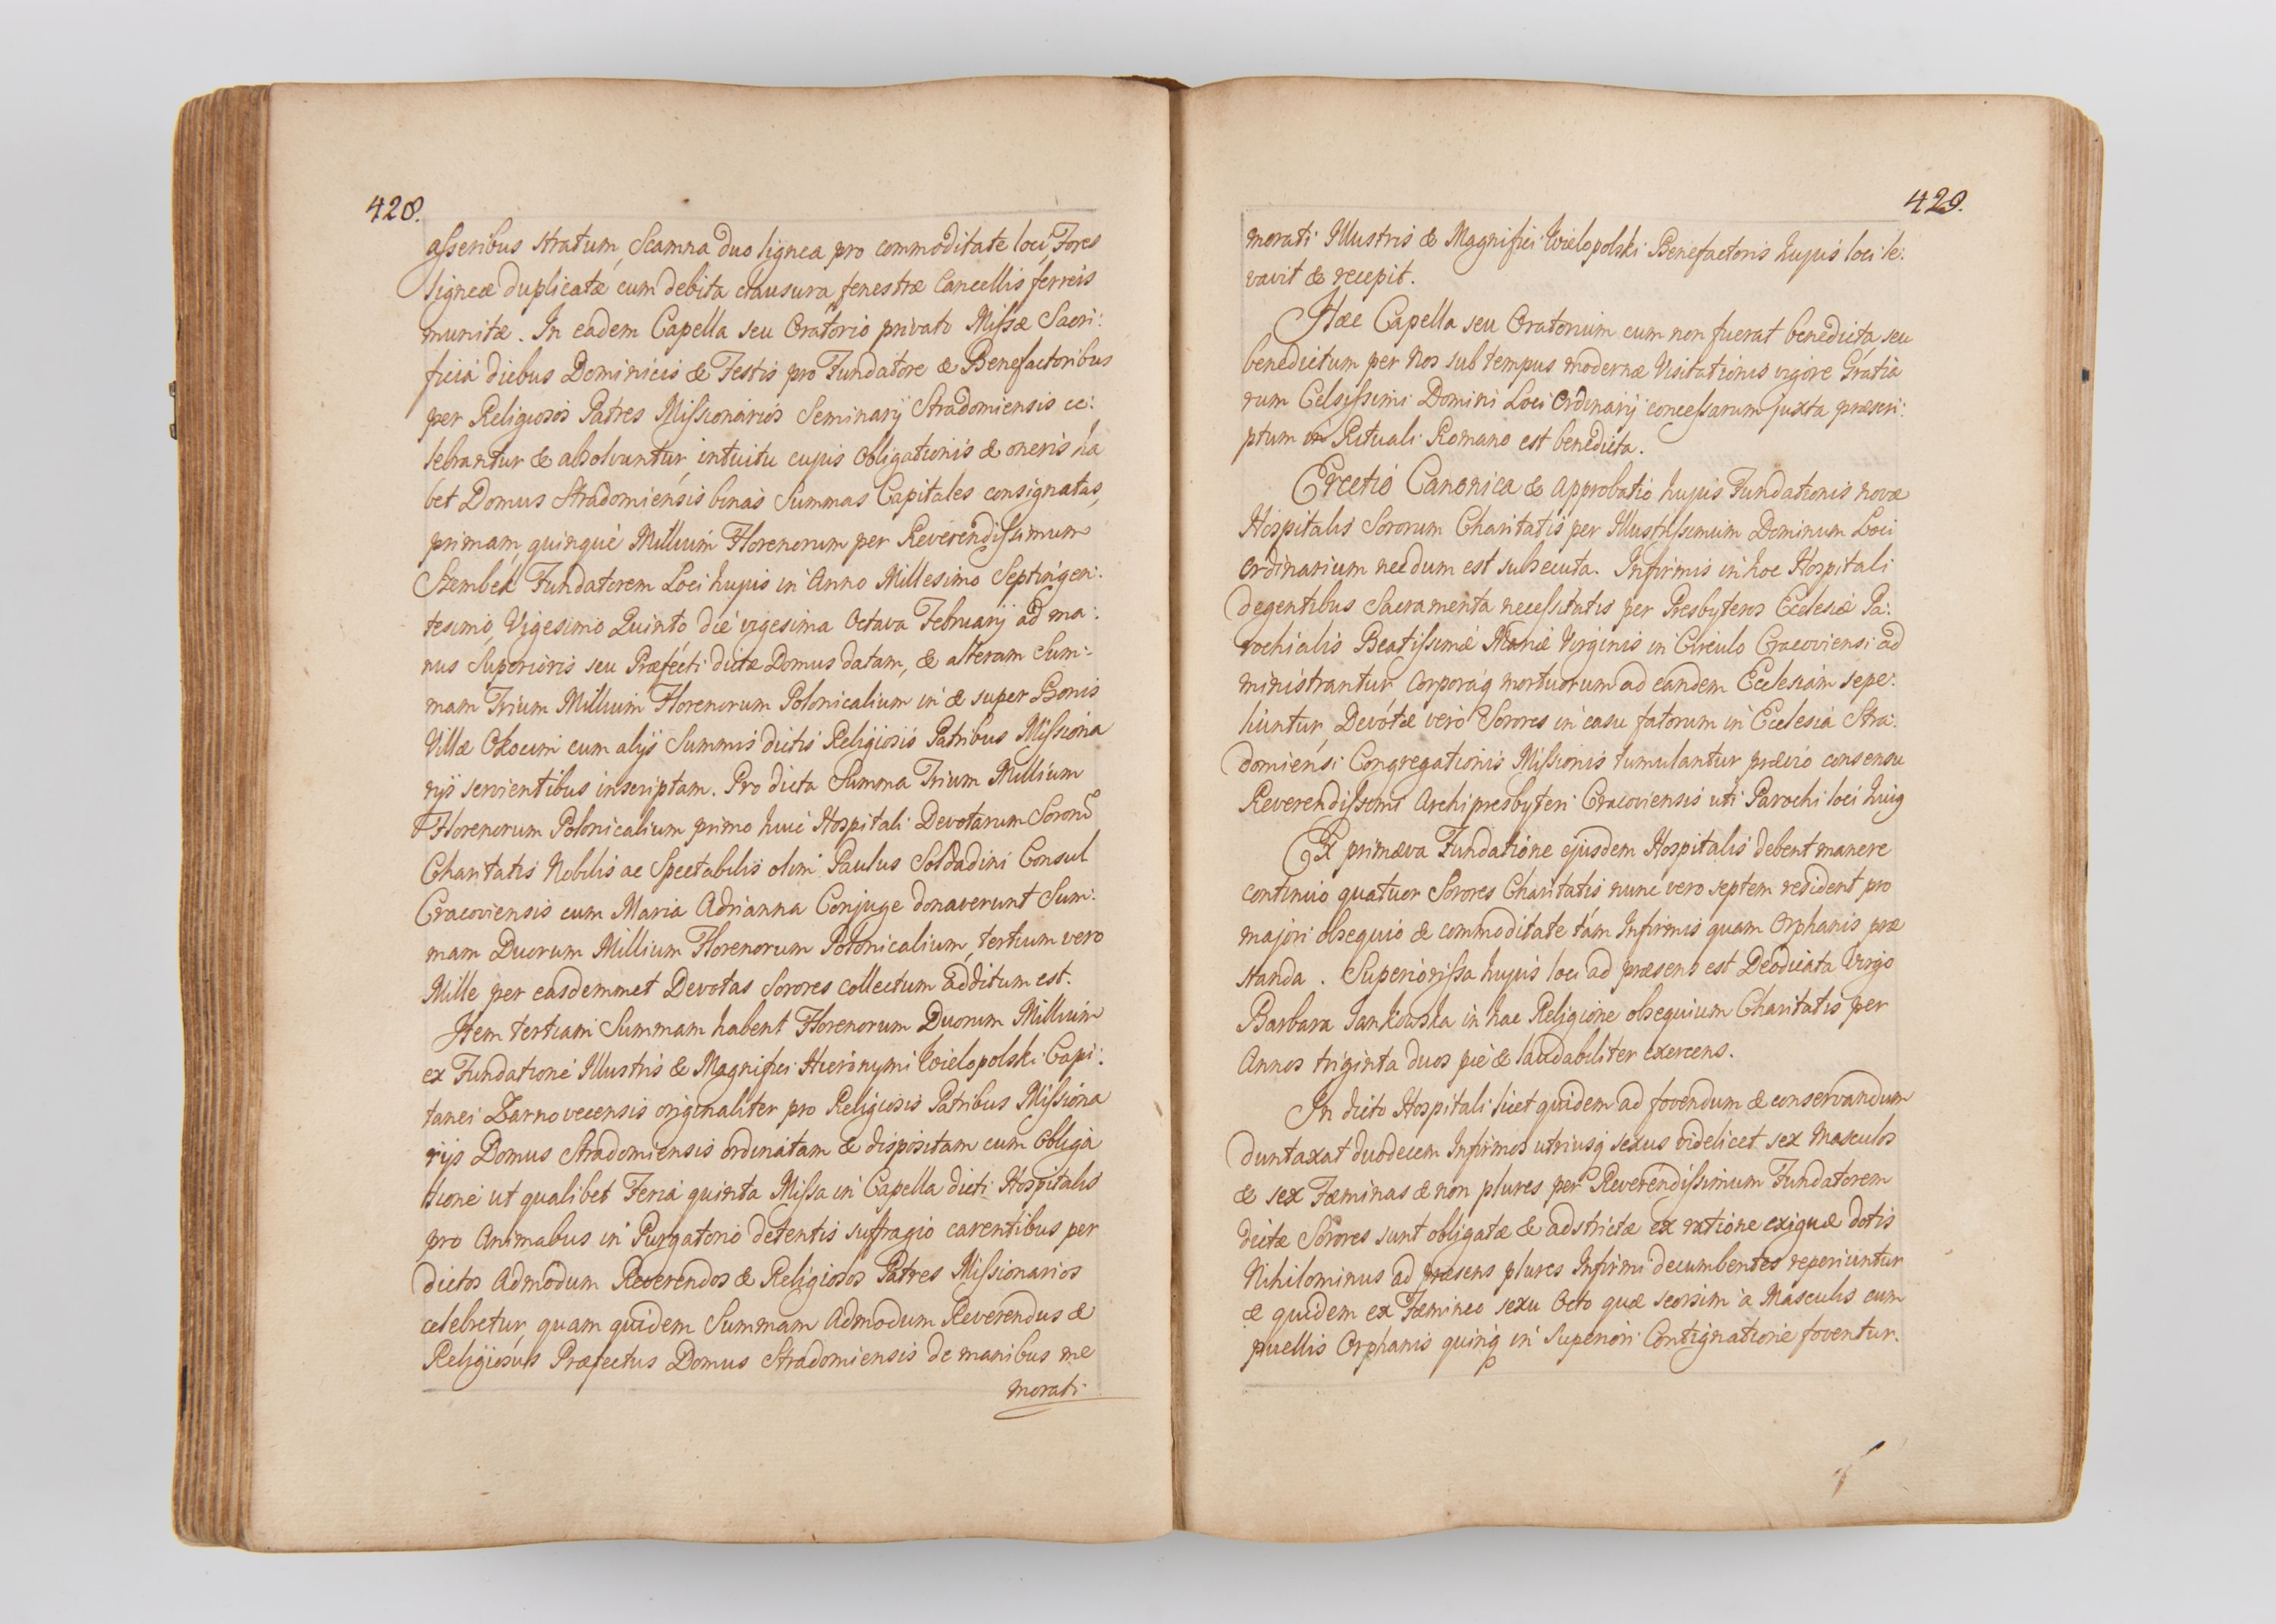 428.
asseribus stratum, Scamna duo lignea pro commoditate loci, Fores
ligneæ duplicatæ cum debita clausura fenestræ Cancellis ferreis
munitæ. In eadem Capella seu Oratorio privato Missæ Sacri:
ficia diebus Dominicis & Festis pro Fundatore & Benefactoribus
per Religiosos Patres Missionarios Seminarij Stradomiensis ce:
lebrantur & absolvuntur, intuitu cujus Obligationis & oneris ha
bet Domus Stradomiensis binas Summas Capitales consignatas,
primam, quinque Millium Florenorum per Reverendissimum
Szembek Fundatorem Loci hujus in Anno Millesimo Septingen:
tesimo, Vigesimo Quinto die vigesima Octava Februarij ad ma:
nus Superioris seu Præfecti dictæ Domus datam, & alteram Sum:
mam Trium Millium Florenorum Polonicalium in & super Bonis
Villæ Okocim cum alijs Summis dictis Religiosis Patribus Missiona
rijs servientibus inscriptam. Pro dicta Summa Trium Millium
Florenorum Polonicalium primo huic Hospitali Devotarum Sororũ
Charitatis Nobilis ac Spectabilis olim Paulus Soldadini Consul
Cracoviensis cum Maria Adrianna Conjuge donaverunt Sum:
mam Duorum Millium Florenorum Polonicalium, tertium vero
Mille per easdemmet Devotas Sorores collectum additum est.
Item tertiam Summam habent Florenorum Duorum Millium
ex Fundatione Illustris & Magnifici Hieronymi Wielopolski Capi:
tanei Zarnovecensis originaliter pro Religiosis Patribus Missiona
rijs Domus Stradomiensis ordinatam & dispositam cum Obliga
tione ut qualibet Feria quinta Missa in Capella dicti Hospitalis
pro Animabus in Purgatorio detentis suffragio carentibus per
dictos Admodum Reverendos & Religiosos Patres Missionarios
celebretur, quam quidem Summam Admodum Reverendus &
Religiosus Præfectus Domus Stradomiensis de manibus me
morati
429.
morati Illustris & Magnifici Wielopolski Benefactoris hujus loci le:
vavit & recepit.
Hæc Capella seu Oratorium cum non fuerat benedicta, seu
benedictum per Nos sub tempus modernæ Visitationis vigore Gratia
rum Celsissimi Domini Loci Ordinarij concessarum juxta præscri:
ptum in Rituali Romano est benedicta.
Erectio Canonica & Approbatio hujus Fundationis novæ
Hospitalis Sororum Charitatis per Illustrissimum Dominum Loci
Ordinarium necdum est subsecuta. Infirmis in hoc Hospitali
degentibus Sacramenta necessitatis per Presbyteros Ecclesiæ Pa:
rochialis Beatissimæ Mariæ Virginis in Circulo Cracoviensi ad
ministrantur Corporáq mortuorum ad eandem Ecclesiam sepe:
liuntur, Devotæ vero Sorores in casu fatorum in Ecclesia Stra:
domiensi Congregationis Missionis tumulantur prævio consensu
Reverendissimi Archipresbyteri Cracoviensis uti Parochi loci hujg
Ex primæva Fundatione ejusdem Hospitalis debent manere
continuo quatuor Sorores Charitatis nunc vero septem resident pro
majori obsequio & commoditate tám Infirmis quam Orphanis præ
standa. Superiorissa hujus loci ad præsens est Deodicata Virgo
Barbara Jankowska in hac Religione obsequium Charitatis per
Annos triginta duos pie & laudabiliter exercens.
In dicto Hospitali licet quidem ad fovendum & conservandum
duntaxat duodecem Infirmos utriusq sexus videlicet sex Masculos
& sex Fæminas & non plures per Reverendissimum Fundatorem
dictæ Sorores sunt obligatæ & adstrictæ ex ratione exiguæ dotis
Nihilominus ad præsens plures Infirmi decumbentes reperiuntur
& quidem ex Fæmineo sexu Octo quæ seorsim a Masculis cum
puellis Orphanis quinq in Superiori Contignatione foventur.